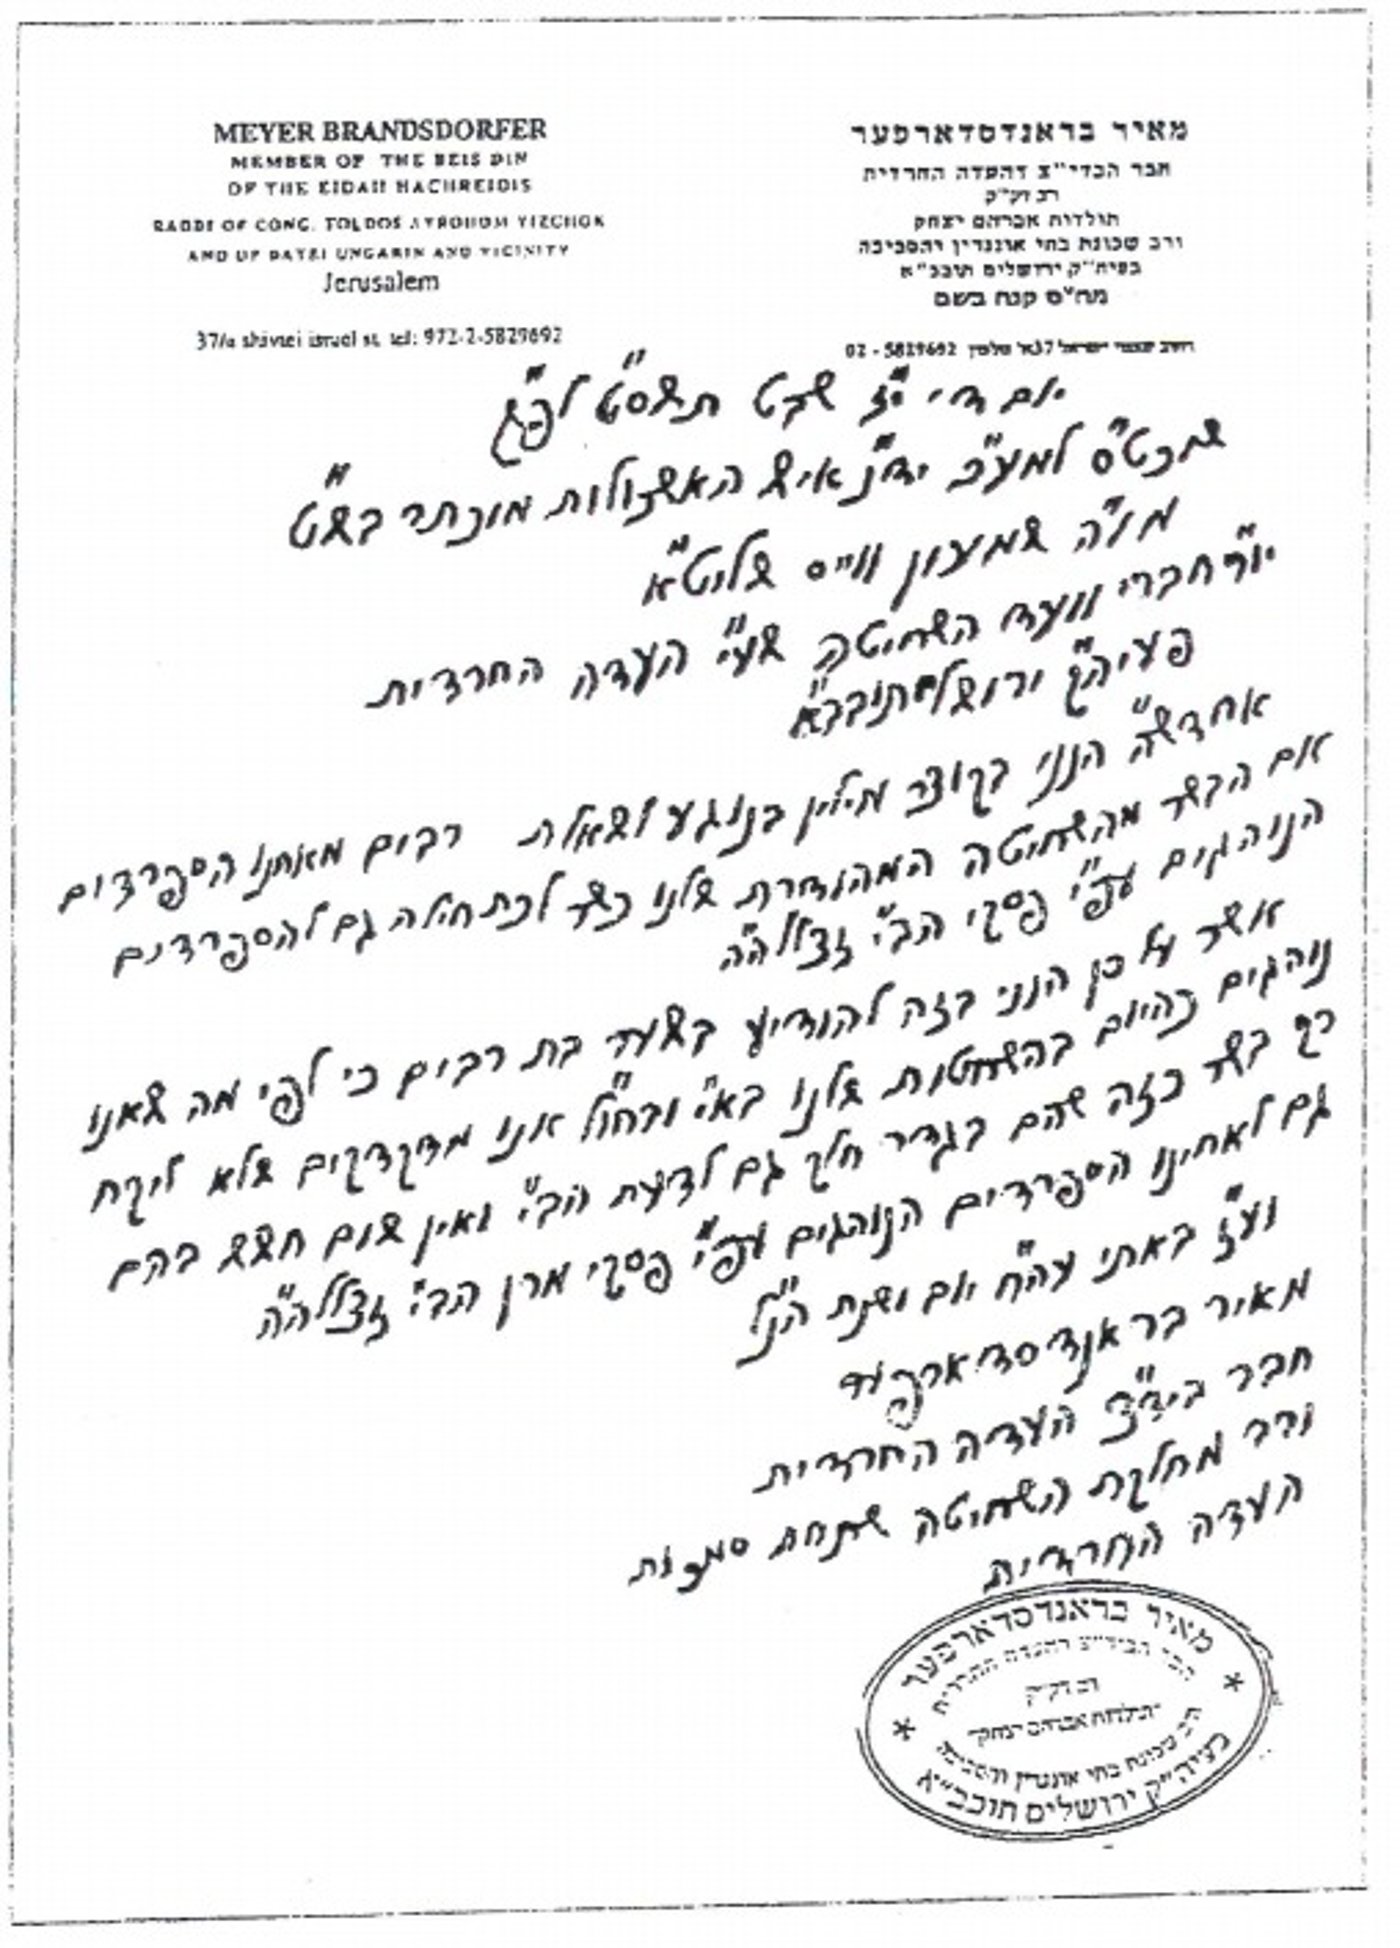 MEYER BRANDSDORFER
MEMBER OF THE BEIS DIN
OF THE EIDAH HACHREIDIS
RABBI OF CONG. TOLDOS AVROHUM YIZCHOK
AND OF BATEI UNGARIN AND VICINITY
Jerusalem
37/a shivtei israel st. tel: 972-2-5829692
מאיר בראנדסדארפער
חבר הבדי״צ דהעדה החרדית
רב דק״ק
תולדות אברהם יצחק
ורב שכונת בתי אונגרין והסביבה
בעיה״ק ירושלים תובב״א
מח״ס קנה בשם
רחוב שבטי ישראל 37א׳ טלפון 02 - 5829692
יום ד׳ י״ז שבט תשס״ט לפ״ג
שוכט״ס למע״כ ידי״נ איש האשכולות מוכתר בשט״ו
מו״ה שמעון ווייס שליט״א
יו״ר חברי וועד השחיטה שע״י העדה החרדית
פעיה״ק ירושלים תובב״א
אחדשה״ט הנני בקוצר מילין בנוגע לשאלת רבים מאחנו הספרדים
אם הבשר מהשחיטה המהודרת שלנו כשר לכתחילה גם להספרדים
הנוהגים עפ״י פסקי הב״י זצללה״ה
אשר על כן הנני בזה להודיע בשער בת רבים כי לפי מה שאנו
נוהגים כהיום בהשחיטות שלנו בא״י ובחו״ל אנו מדקדקים שלא ליקח
רק בשר כזה שהם בגדר חלק גם לדעת הב״י ואין שום חשש בהם
גם לאחינו הספרדים הנוהגים עפ״י פסקי מרן הב״י זצללה״ה
וע״ז באתי עה״ח יום ושנת הנ״ל
מאיר בראנדסדארפער
חבר ביד״צ העדה החרדית
ורב מחלקת השחיטה שתחת סמכות
העדה החרדית
מאיר בראנדסדארפער
חבר הביד״צ דהעדה החרדית
רב דק״ק
״תולדות אברהם יצחק״
ורב שכונת בתי אונגרין והסביבה
בעיה״ק ירושלים תובב״א